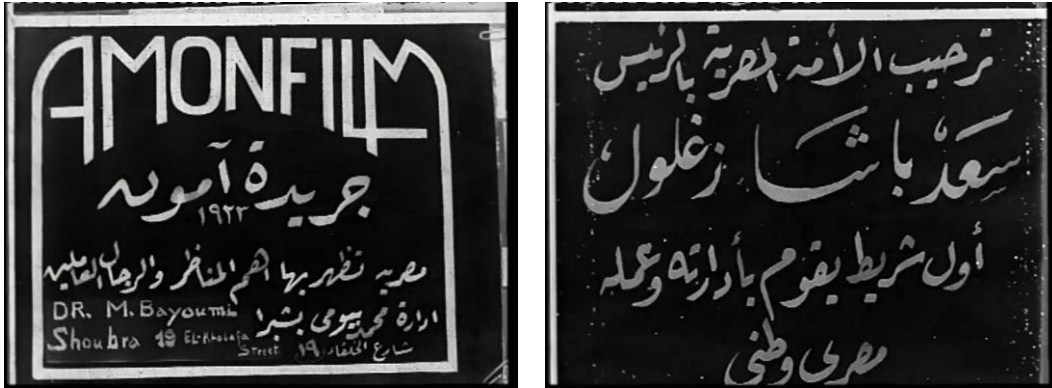 AMONFILM
جريدة آمون
١٩٢٣
مصرية تظهر بها اهم المناظر والرجال العاملين
DR. M. Bayoumi
ادارة محمد بيومى بشبرا
Shoubra 19 EL-Kholafa Street
شارع الخلفاء ١٩
ترحيب الأمة المصرية بالرئيس
سعد باشا زغلول
أول شريط يقوم بأدارته وعمله
مصرى وطنى